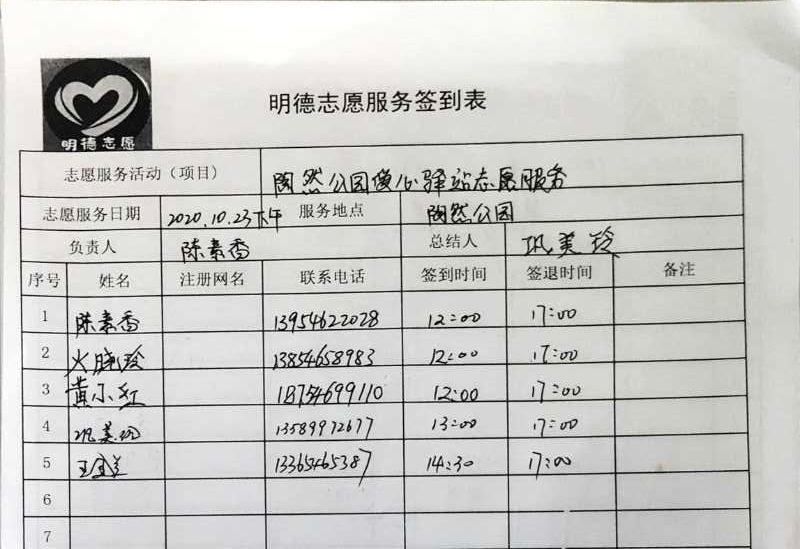 明德志愿
明德志愿服务签到表
志愿服务活动（项目） 陶然公园傻心驿站志愿服务
志愿服务日期 2020.10.23下午 服务地点 陶然公园
负责人 陈素香 总结人 巩美玲
序号 姓名 注册网名 联系电话 签到时间 签退时间 备注
1 陈素香 13954622028 12:00 17:00
2 13854658983 12:00 17:00
3 黄小红 18754699110 12:00 17:00
4 巩美玲 13589972677 13:00 17:00
5 13365465387 14:30 17:00
6
7